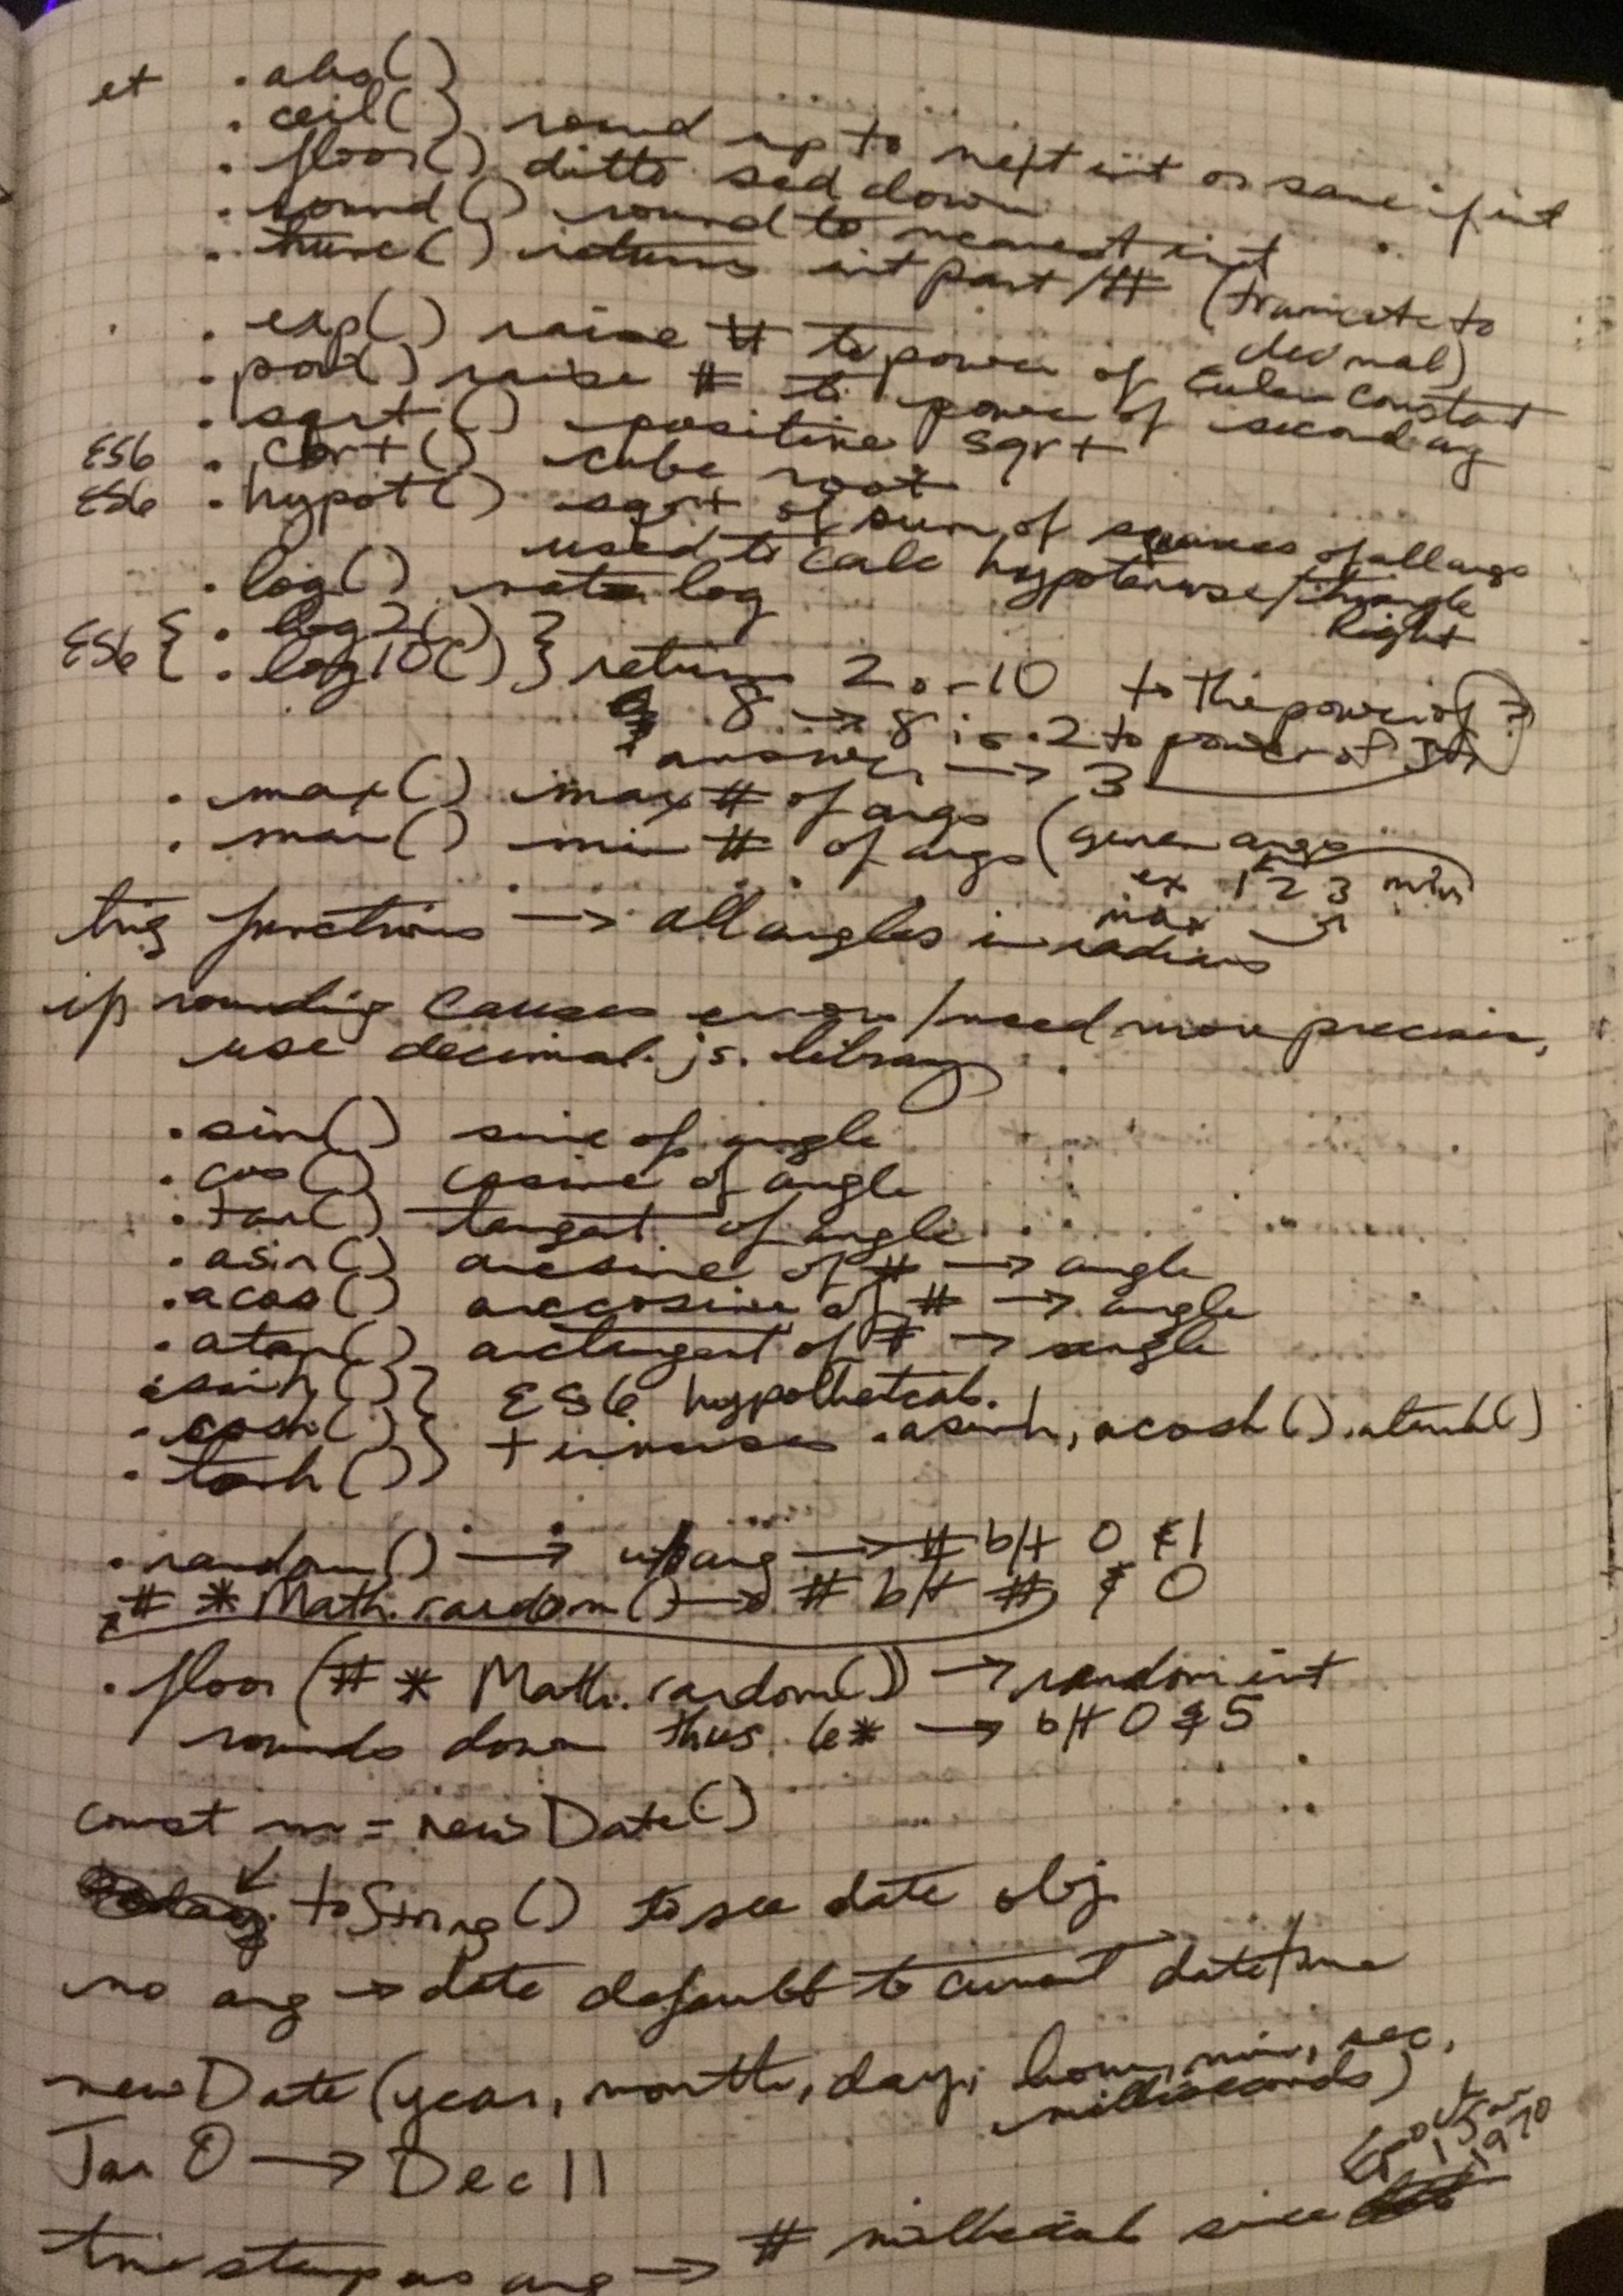 et . abs()
. ceil() round up to next int or same if int
. floor() ditto sed down
. round() round to nearest int
. trunc() returns int part / # (truncate to decimal)
. exp() raise # to power of Euler constant
. pow() raise # to power of second arg
. sqrt() positive sqrt
ES6 . cbrt() cube root
ES6 . hypot() sqrt of sum of squares of all args
used to calc hypotenuse / triangle
Right
. log() natu log
ES6 { . log2() }
{ . log10() } return 2 or 10 to the power of ?
8 → 8 is 2 to power of
answer → 3
. max() max # of args
. min() min # of args (given args
ex 1 2 3 min
max
trig functions → all angles in radians
if rounding causes error / need more precision,
use decimal.js. library
. sin() sine of angle
. cos() cosine of angle
. tan() tangent of angle
. asin() arcsine of # → angle
. acos() arccosine of # → angle
. atan() arctangent of # → angle
. sinh() } ES6 hypothetcal.
. cosh() } + inverses . asinh, acosh(). atanh()
. tanh() }
. random() → w/o arg → # b/t 0 & 1
# * Math.random() → # b/t # & 0
. floor (# * Math.random()) → random int
rounds down thus 6* → b/t 0 & 5
const = new Date()
toString() to see date obj
no arg → date default to current date/time
new Date (year, month, day, hour, min, sec,
milliseconds)
Jan 0 → Dec 11
Epoch
1 Jan
1970
timestamp as arg → # since